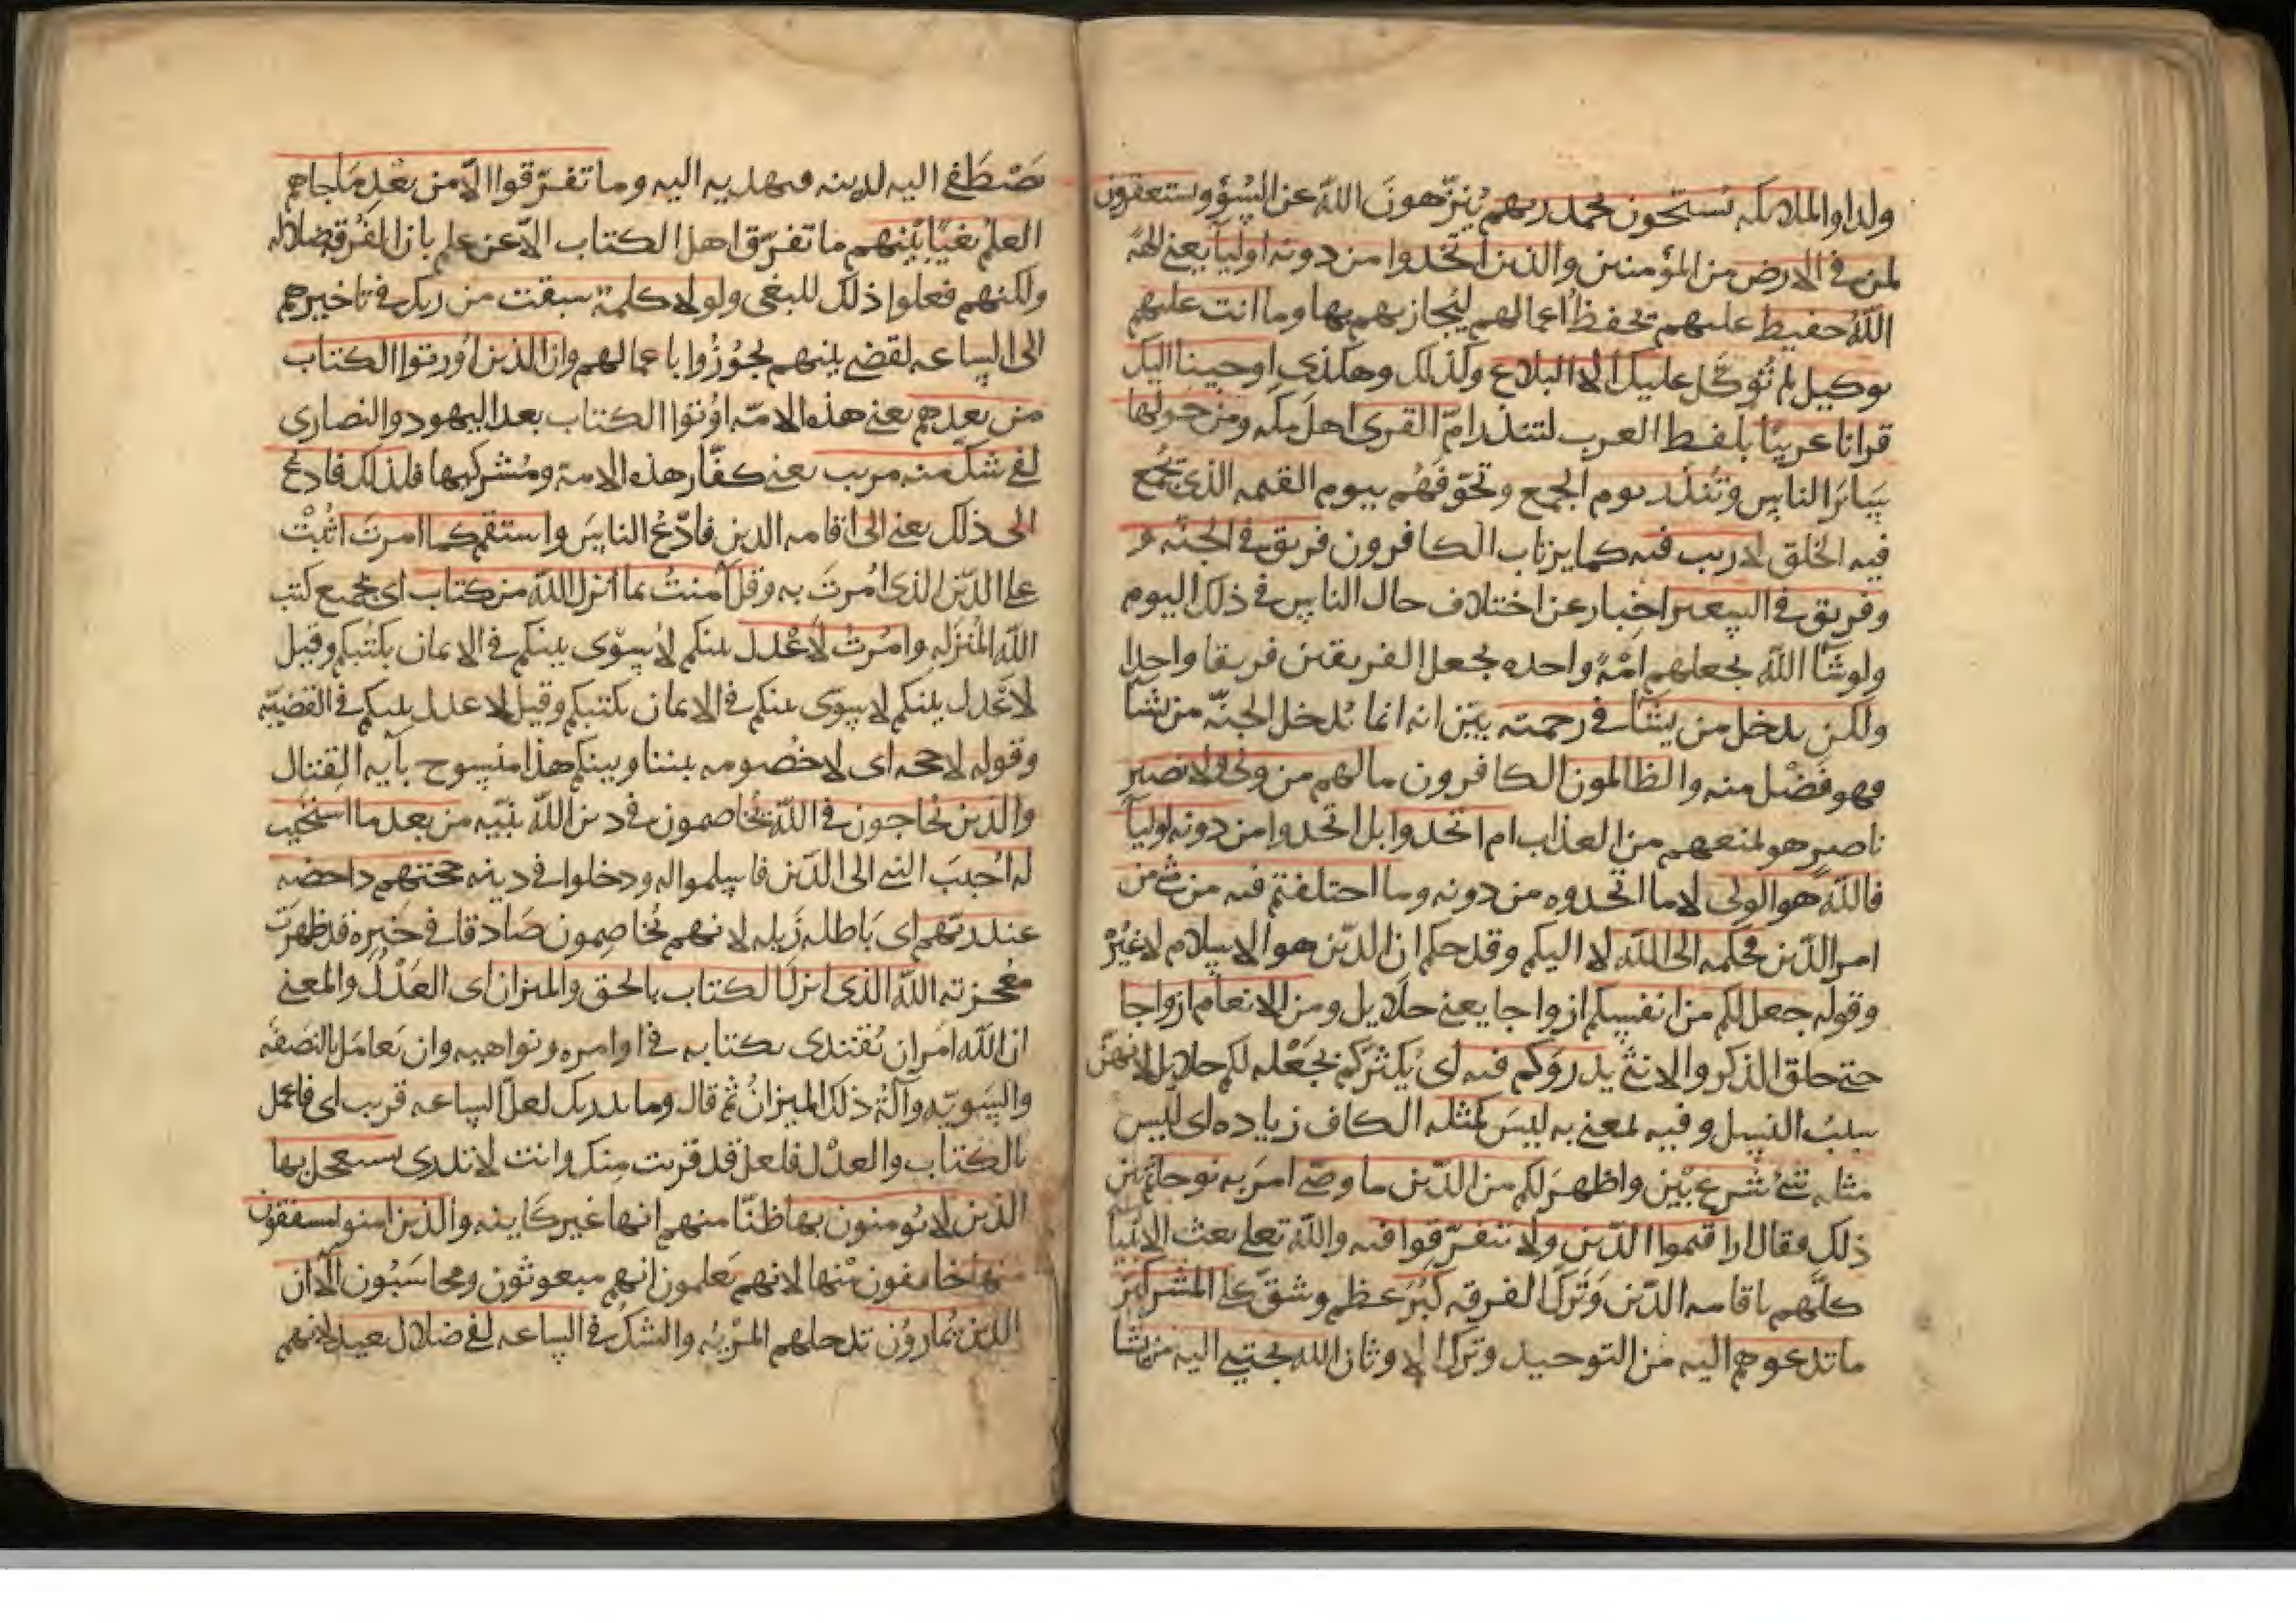 ولدا والملائكه يسبحون بحمد ربهم يُنزّهونَ اللهَ عن السُوٓءِ ويستغفرون
لمن في الارض من المؤمنين والذين اتخذوا من دونه اوليآ يعني الهةً
اللهُ حفيظ عليهم يحفظ اعمالهم ليُجازيهم بها وما انت عليهم
بوكيل لم تُوَكَّل عليك الا البلاغ وكذلك وهكذي اوحينا اليك
قرانا عربيًا بلفظ العرب لتنذر امّ القرى اهل مكه ومن حولها
سَآئرَ الناس وتُنذر يوم الجمع وتخوّفَهُم بيوم القيمه الذي يَجمع
فيه الخلق لا ريب فيه كما يرتاب الكافرون فريق في الجنّه و
وفريق في السعير اخبار عن اختلاف حال الناس في ذلك اليوم
ولو شآ اللهُ لجعلهم امّةً واحده لجعل الفريقين فريقا واحدا
ولكن يدخل من يشآ في رحمته بيّن انه انما يُدخل الجنّه من يشآ
فهو فضْل منه والظالمون الكافرون ما لهم من ولى ولا نصير
ناصرٍ هو لمنعهم من العذاب ام اتخذوا بل اتخذوا من دونه اوليآ
فاللهُ هو الولى لا ما اتخذوه من دونه وما اختلفتم فيه من شئ من
امر الدّين فحكمه الى الله لا اليكم وقد حكم ان الدّين هو الاسلام لا غيُرْ
وقوله جعل لكم من انفسكم ازواجا يعني حلايل ومن الانعام ازواجا
حتى خلق الذكر والانثى يذروَكم فيه اى يُكثّركم بجَعْله لكم حلايل لانهنّ
سببُ النسل وفيه بمعنى به ليسَ كمثله الكاف زياده اى ليس
مثله شئ شَرع بيّن واظهرَ لكم من الدّين ما وصى امرَ به نوحا ثم بيّن
ذلك فقال ان اقيموا الدّين ولا تتفرّقوا فيه والله تعلى بعث الانبيآ
كلّهم باقامه الدّين وتَرك الفرقه كَبُرَ عظم وشقّ على المشركين
ما تدعوهم اليه من التوحيد وتَرك الاوثان الله يجتبي اليه من يشآ
يَصْطَفي اليه لدينه فيهديه اليه وما تفرّقوا الّا من بعْدِ مَا جاهم
العلمُ بغيًا بيْنهم ما تفرّق اهل الكتاب الّا عن علم بان الفُرقه ضلاله
ولكنهم فعلوا ذلك للبغى ولولا كلمة سبقت من ربك في تاخيرهم
الى الساعه لقضى بينهم لجُوزُوا باعمالهم وان الذين اُورثوا الكتاب
من بعدهم يعني هذه الامّه اُوتوا الكتاب بعد اليهود والنصارى
لفى شكّ منه مريب يعني كفّار هذه الامة ومُشركيها فلذلك فادعُ
الى ذلك يعني الى اقامه الدين فادْعُ الناسَ واستقم كما امرتَ اثبُتْ
على الدّين الذى اُمرتَ به وقل آمنتُ بما انزل اللهُ من كتاب اى بجميع كتب
الله المُنزَله وامُرتُ لاَعْدل بينكم لاُسوّى بينكم في الايمان بكتُبكم وقيل
لاَعْدل بينكم لاسوّى بينكم في الايمان بكتبكم وقيل لاعدل بينكم في القضيّه
وقوله لا حجه اى لا خُصومه بيننا وبينكم هذا منسوخ بآيه القتال
والذين يُحاجون في الله يُخاصمون في دين الله نبيّه من بعد ما استُجيب
له اُجيبَ النبى الى الدّين فاسلموا له ودخلوا في دينه حجتهم داحضه
عند ربّهم اى بَاطله زَايله لانهم يُخاصِمون صَادقا في خَبره قد ظهرَت
مُعجزته اللهُ الذى انزل الكتاب بالحق والميزان اى العَدْلُ والمعنى
ان الله امَر ان يُقتدى بكتابه في اوامره ونواهيه وان يعامَل بالنصَفَه
والسَّويّه وآلةُ ذلك الميزانُ ثم قال وما يدريك لعلّ الساعه قريب اى فاعمل
بالكتاب والعدْل فلعل قد قربت منك وانت لا تدرى يستعجل بها
الذين لا يُومنون بها ظنّا منهم انها غير كاينه والذين امنوا مشفقون
منها خايفون مْنها لانهم يَعلمون انهم مبعوثون ومحاسَبُون الا ان
الذين يُمارُون تدخلهم المرْيهُ والشكُ في الساعه لفى ضلال بعيد لانهم